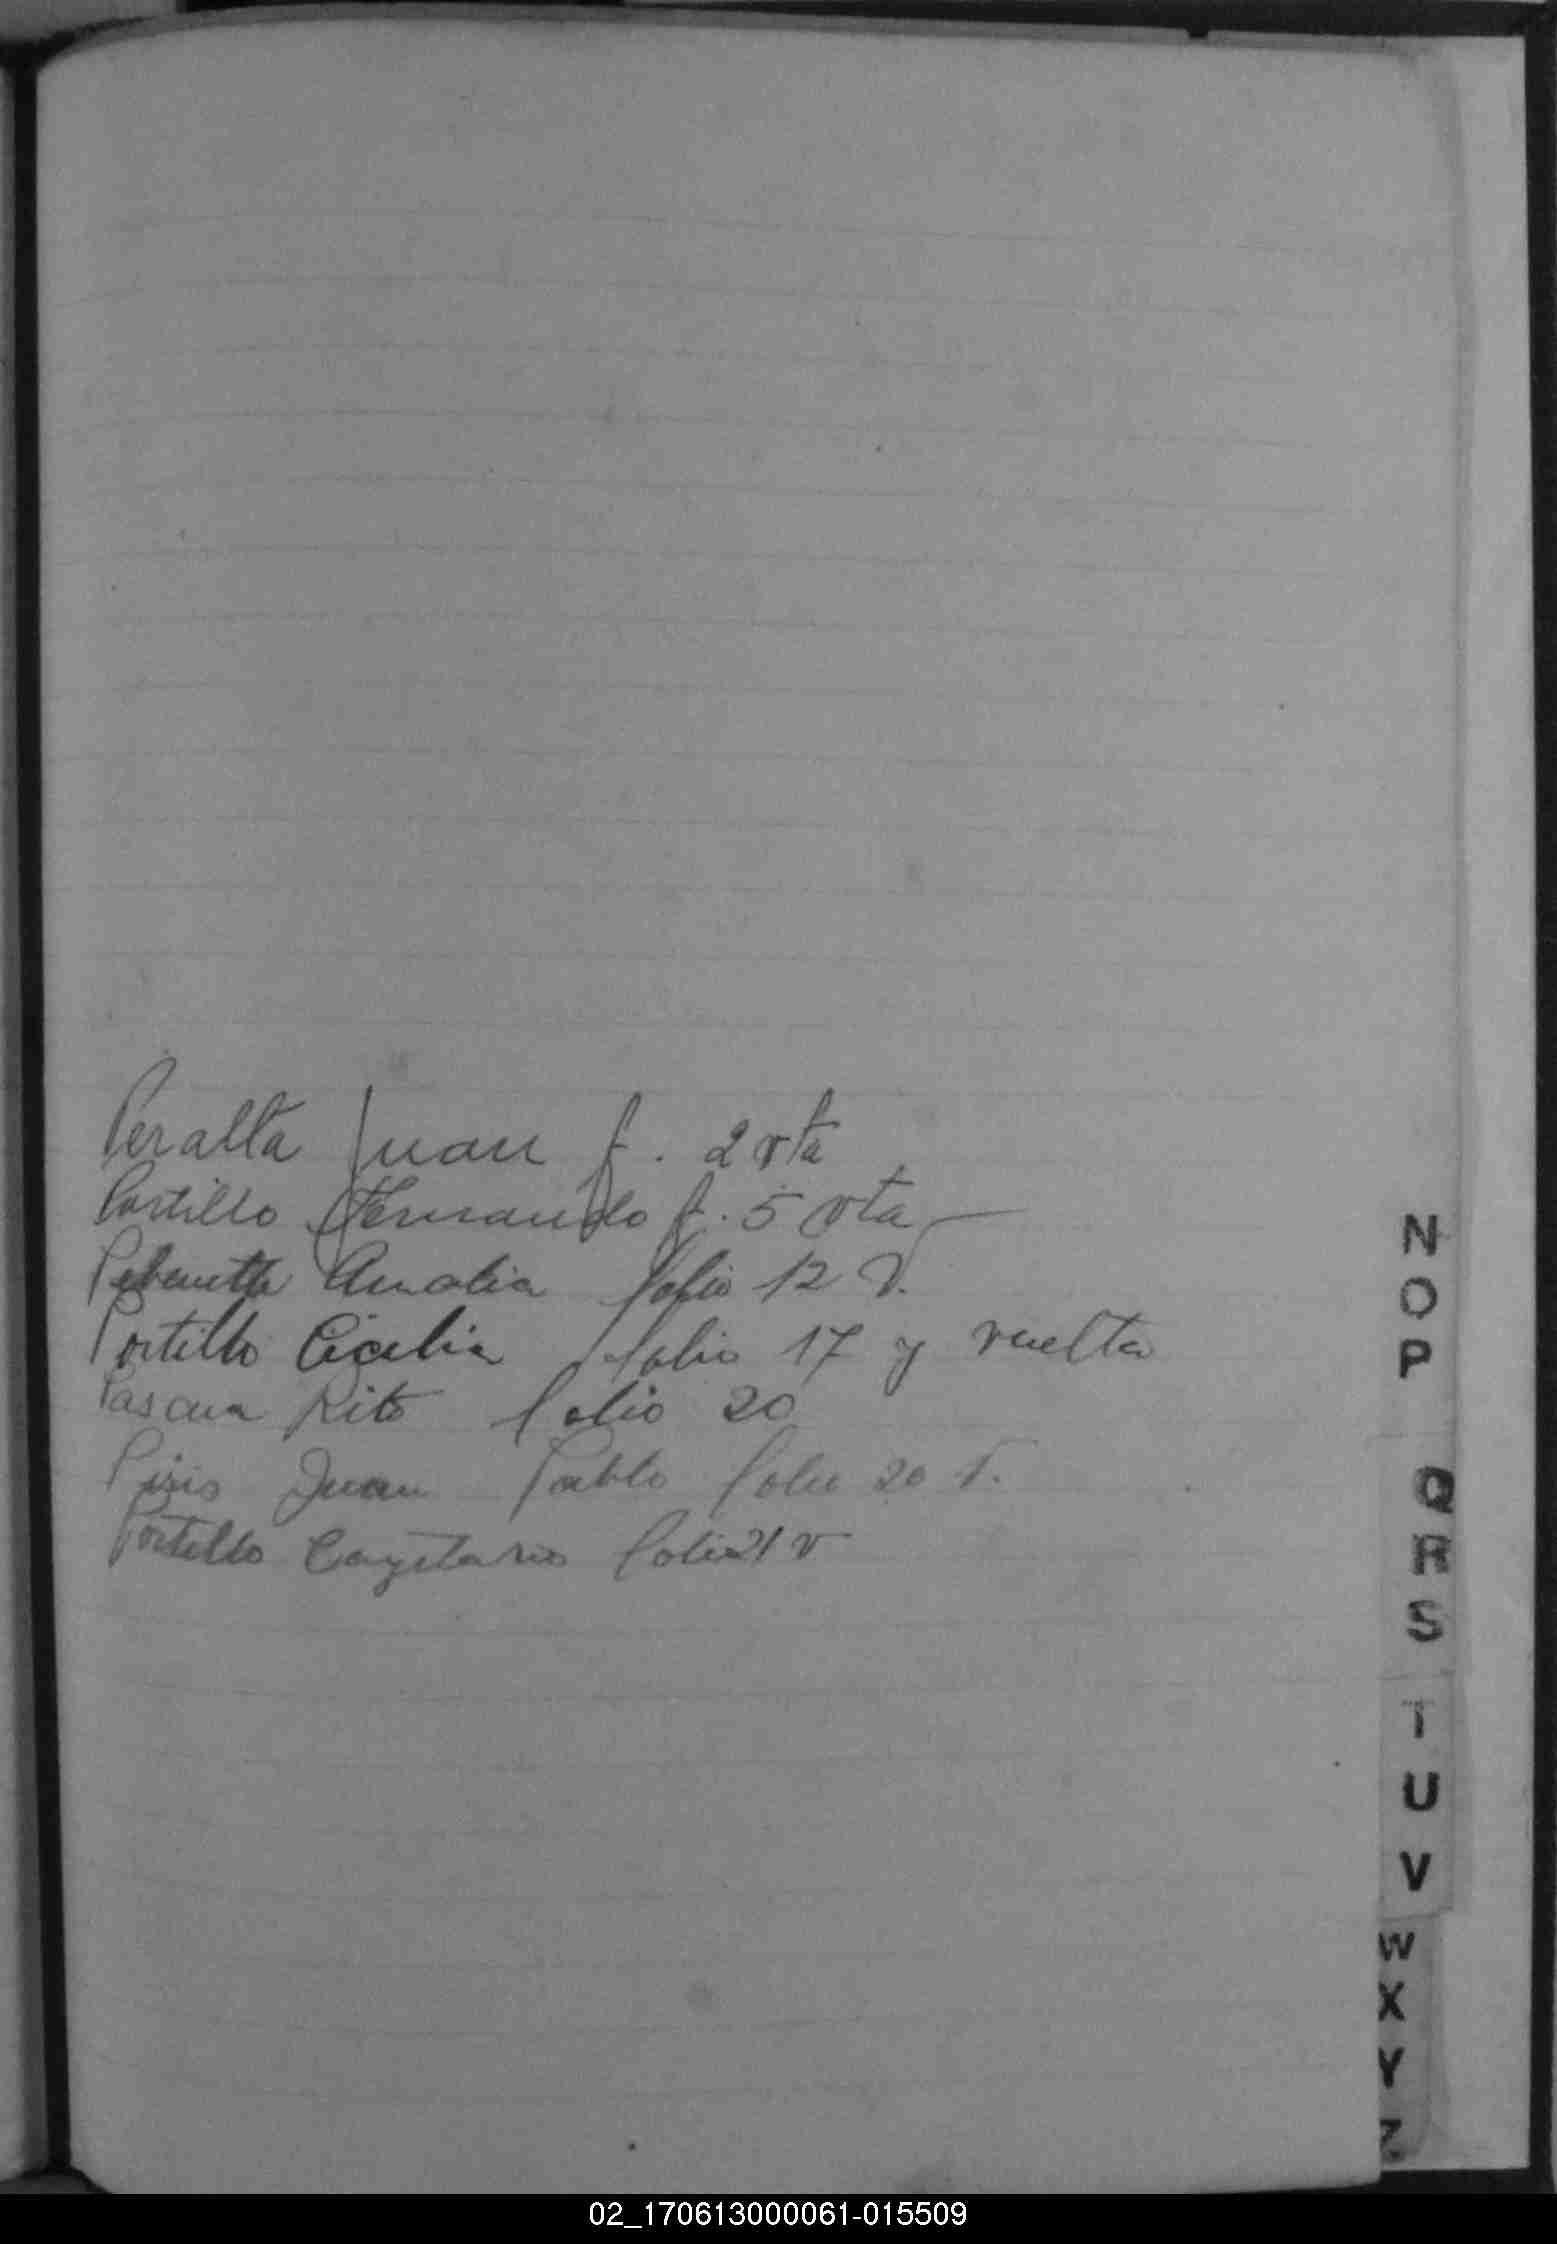 Peralta Juan f. 2 vta
Portillo Hernando f. 5 vta
Amalia folio 12 V.
Portillo Cicilia folio 17 y vuelta
Pascua Rito folio 20
Piris Juan Pablo folio 20 V.
Portillo Cayetano folio 21 v
N
O
P
Q
R
S
T
U
V
W
X
Y
Z
02_170613000061-015509